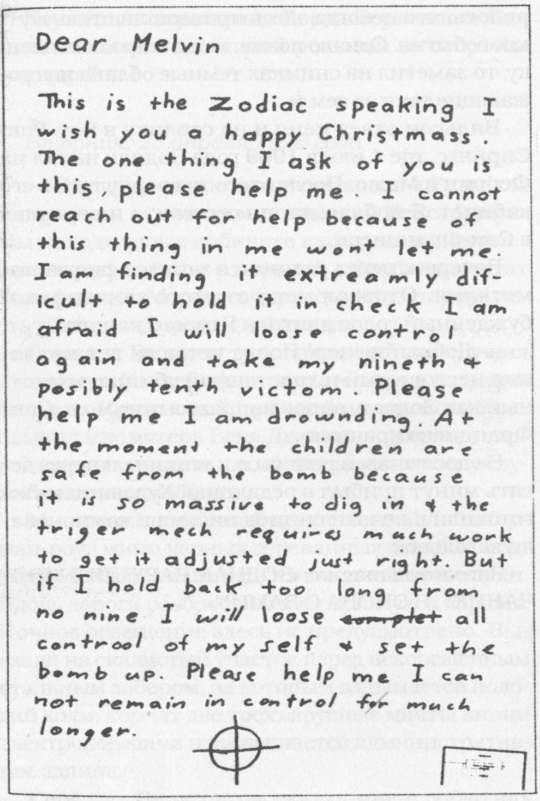 Dear Melvin
This is the Zodiac speaking. I
wish you a happy Christmass.
The one thing I ask of you is
this, please help me. I cannot
reach out for help because of
this thing in me wont let me.
I am finding it extreamly dif-
icult to hold it in check I am
afraid I will loose control
again and take my nineth +
posibly tenth victom. Please
help me I am drownding. At
the moment the children are
safe from the bomb because
it is so massive to dig in + the
triger mech requires much work
to get it adjusted just right. But
if I hold back too long from
no nine I will loose complet all
controol of my self + set the
bomb up. Please help me I can
not remain in control for much
longer.